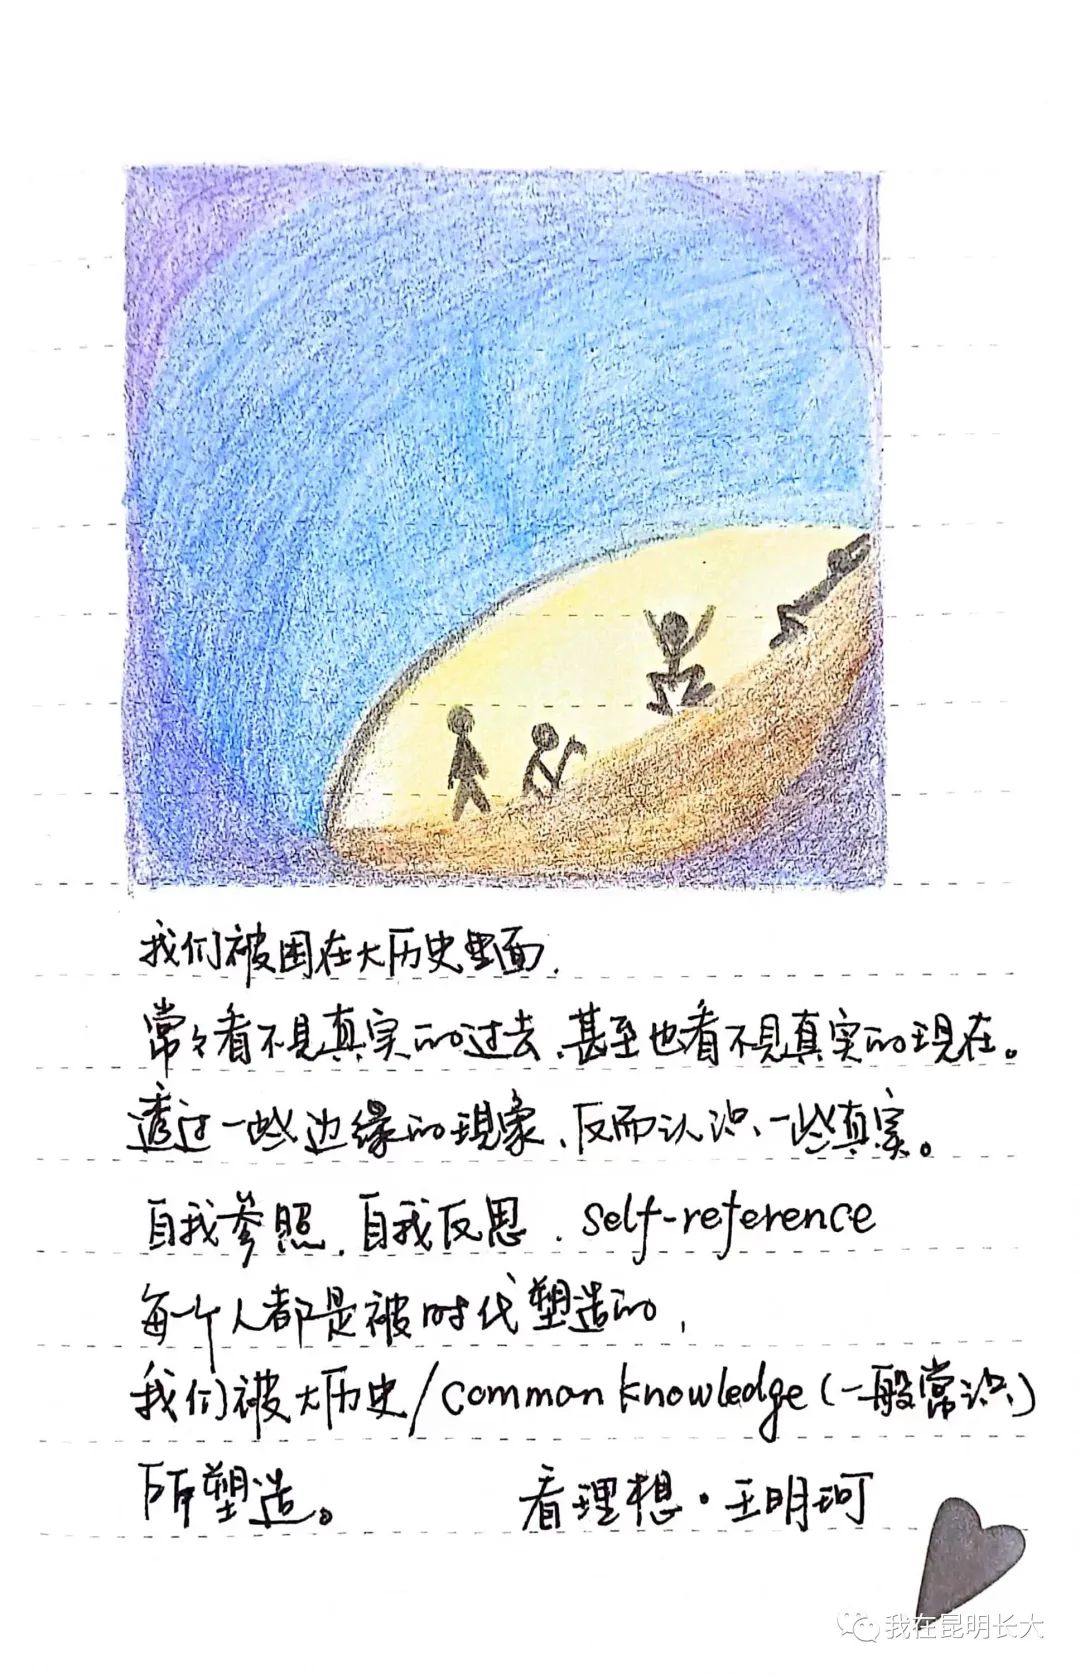 我们被困在大历史里面，
常々看不见真实的过去、甚至也看不见真实的现在。
透过一些边缘的现象、反而认识一些真实。
自我参照，自我反思．self-reference
每一个人都是被时代塑造的，
我们被大历史/common knowledge(一般常识)
所塑造。 看理想·王明珂
我在昆明长大